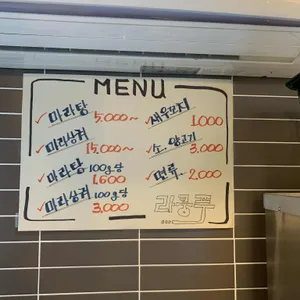 MENU
마라탕 5,000~
마라샹궈 15,000~
마라탕 100g당 1,600
마라샹궈 100g당 3,000
새우꼬지 1,000
소.양고기 3,000
면류. 2,000
라쿵푸